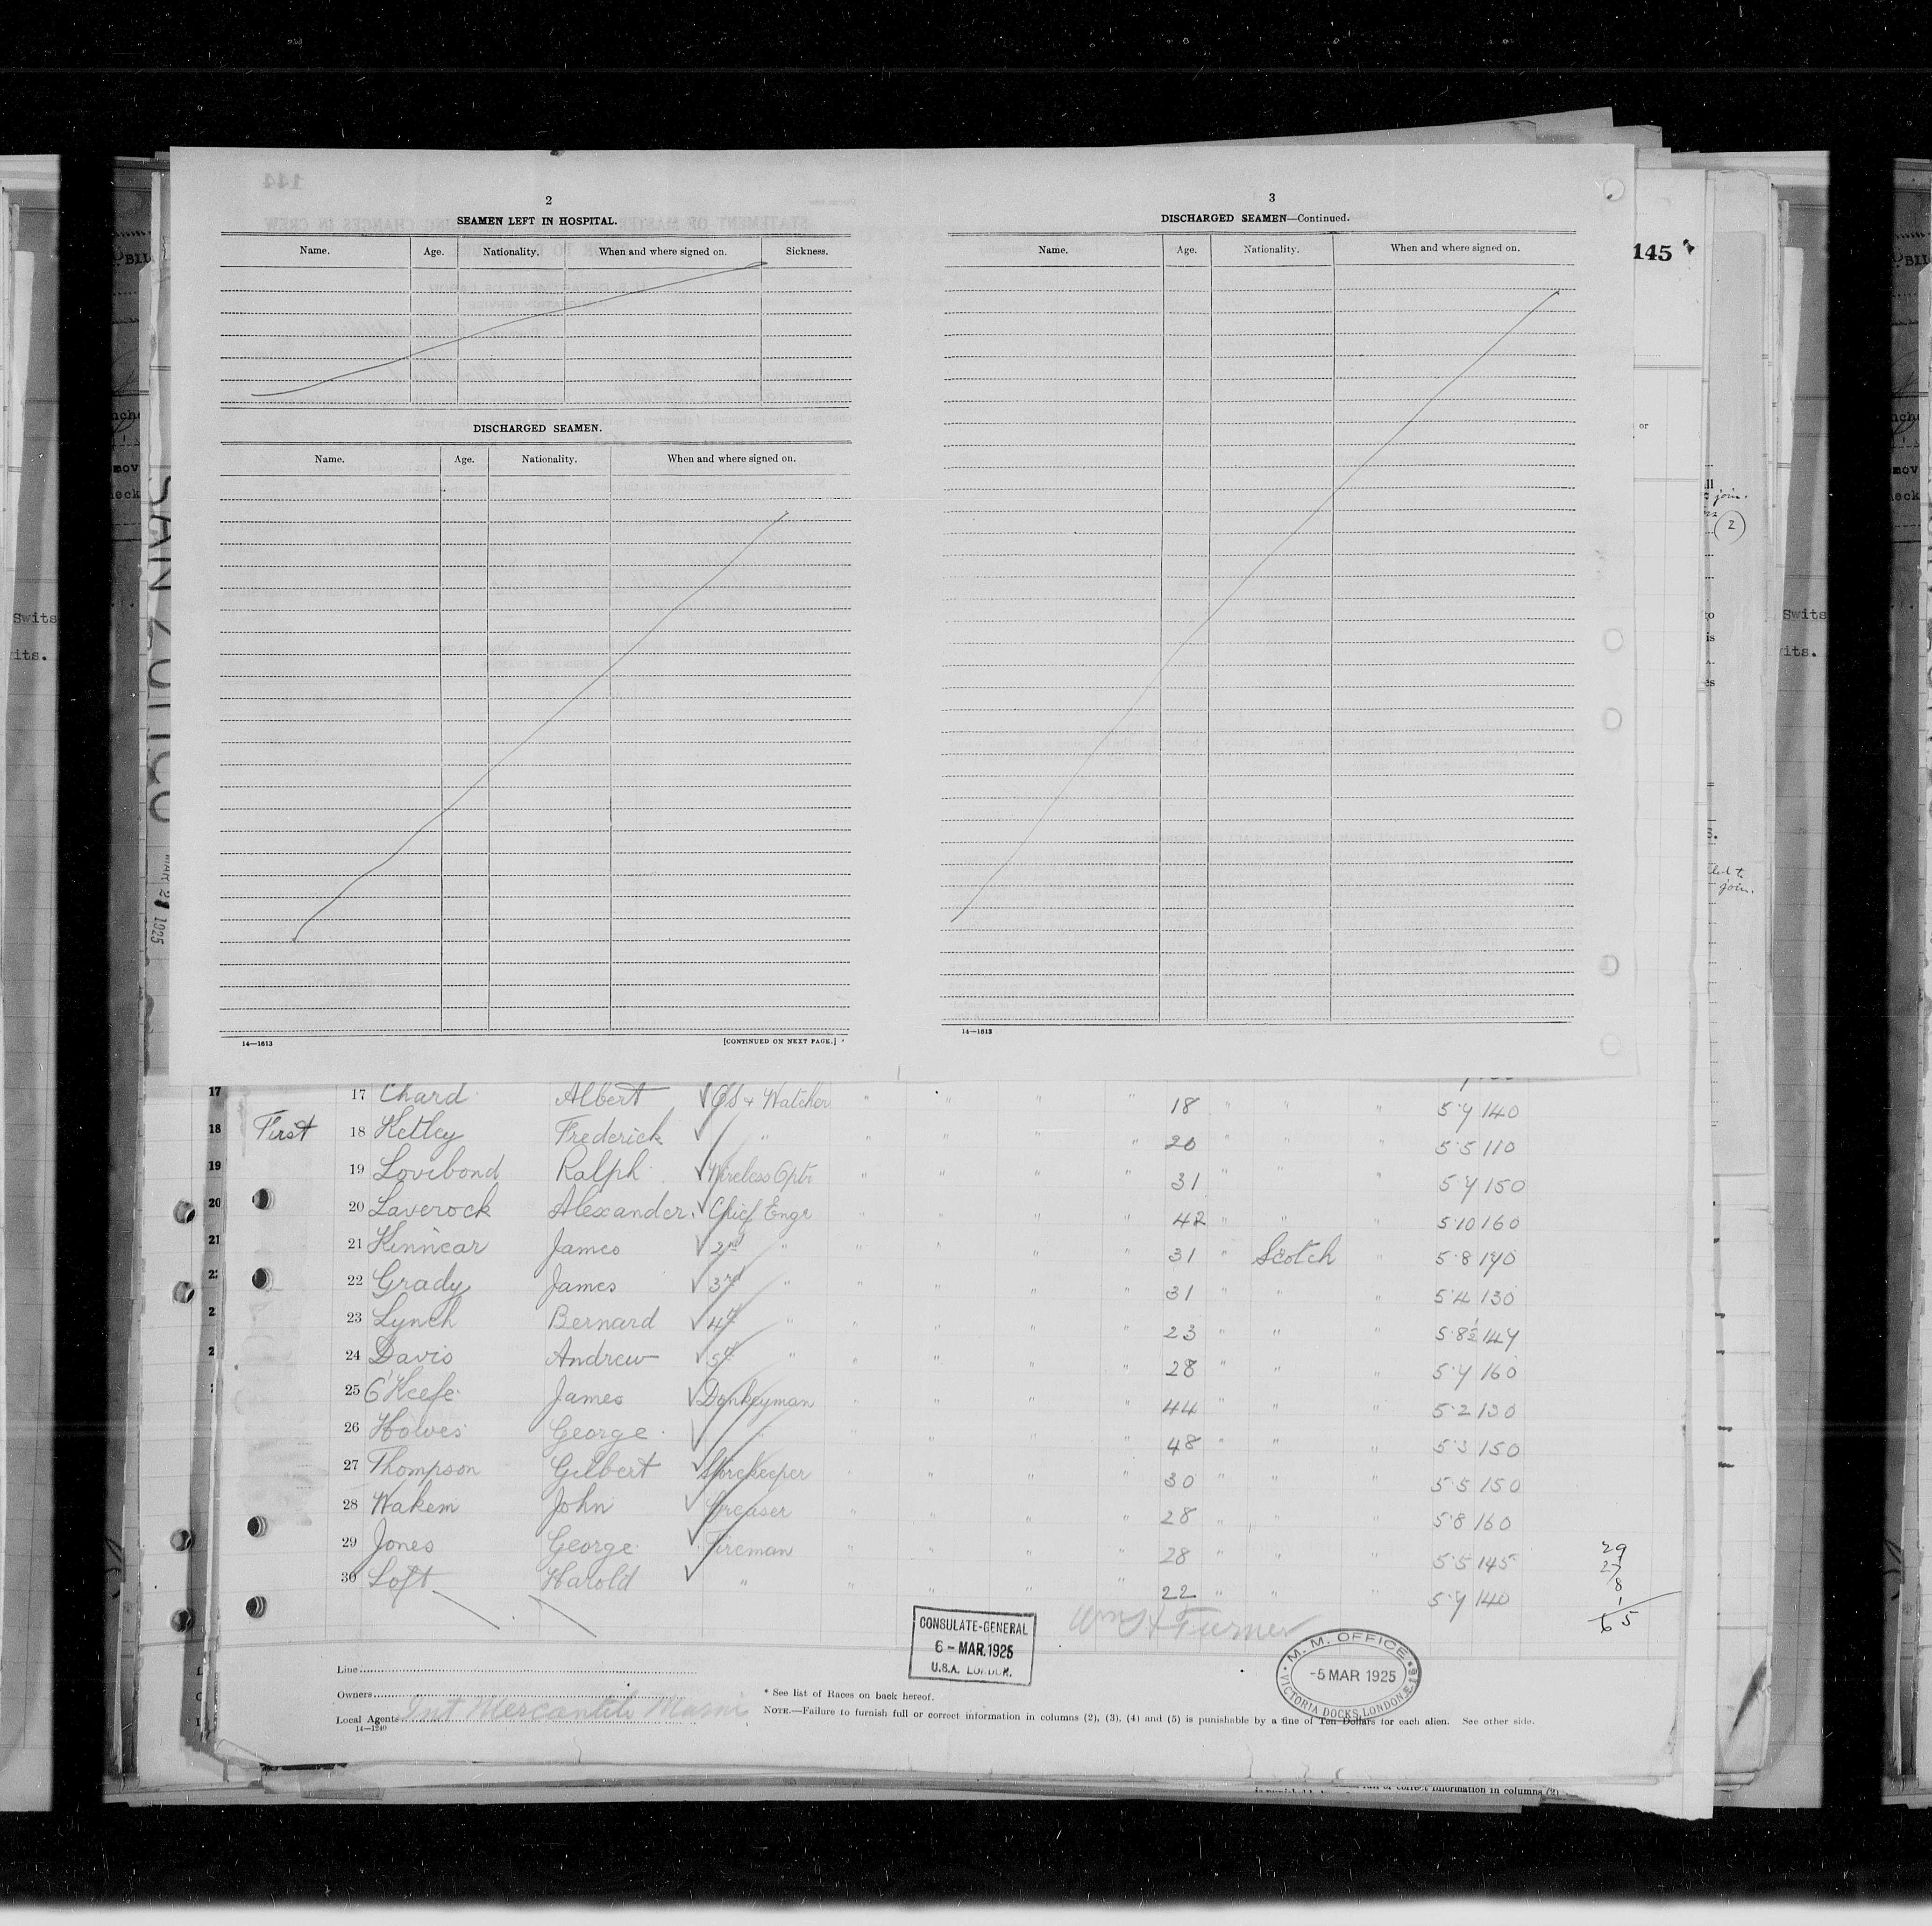 2
SEAMEN LEFT IN HOSPITAL.
Name. Age. Nationality. When and where signed on. Sickness.
DISCHARGED SEAMEN.
Name. Age. Nationality. When and where signed on.
14—1613 [CONTINUED ON NEXT PAGE.]
3
DISCHARGED SEAMEN—Continued.
Name. Age. Nationality. When and where signed on.
14—1613
145
or
join.
2
join.
Swits
its.
Swits
its.
MAR 21 1925
17 17 Chard Albert ✓ OS + Watcher " " " " 18 " " " 5·7 140
18 First 18 Ketley Frederick ✓ " " " " " 20 " " " 5·5 110
19 19 Lovibond Ralph ✓ Wireless Optr " " " " 31 " " 5·7 150
20 20 Laverock Alexander ✓ Chief Engr " " " " 42 " " " 5·10 160
21 21 Kinnear James ✓ 2nd " " " " " 31 " Scotch " 5·8 170
22 Grady James ✓ 3rd " " " " " 31 " " " 5·4 130
23 Lynch Bernard ✓ 4th " " " " " 23 " " " 5·8½ 147
24 Davis Andrew ✓ 5th " " " " " 28 " " " 5·7 160
25 O'Keefe James ✓ Donkeyman " " " " 44 " " " 5·2 130
26 Howes George ✓ " " " " 48 " " " 5·3 150
27 Thompson Gilbert ✓ Storekeeper " " " " 30 " " " 5·5 150
28 Wakem John ✓ Greaser " " " " 28 " " " 5·8 160
29 Jones George ✓ Fireman " " " " 28 " " " 5·5 145
30 Loft Harold ✓ " " " " " 22 " " " 5·7 140
29
27
8
1
65
Wm H Turner
CONSULATE-GENERAL
6 - MAR. 1925
U.S.A. LONDON.
M. M. OFFICE
-5 MAR 1925
VICTORIA DOCKS, LONDON, E.16
Line
Owners
Local Agents Int Mercantile Marine
14—1240
* See list of Races on back hereof.
NOTE.—Failure to furnish full or correct information in columns (2), (3), (4) and (5) is punishable by a fine of Ten Dollars for each alien. See other side.
full or correct information in columns (2)